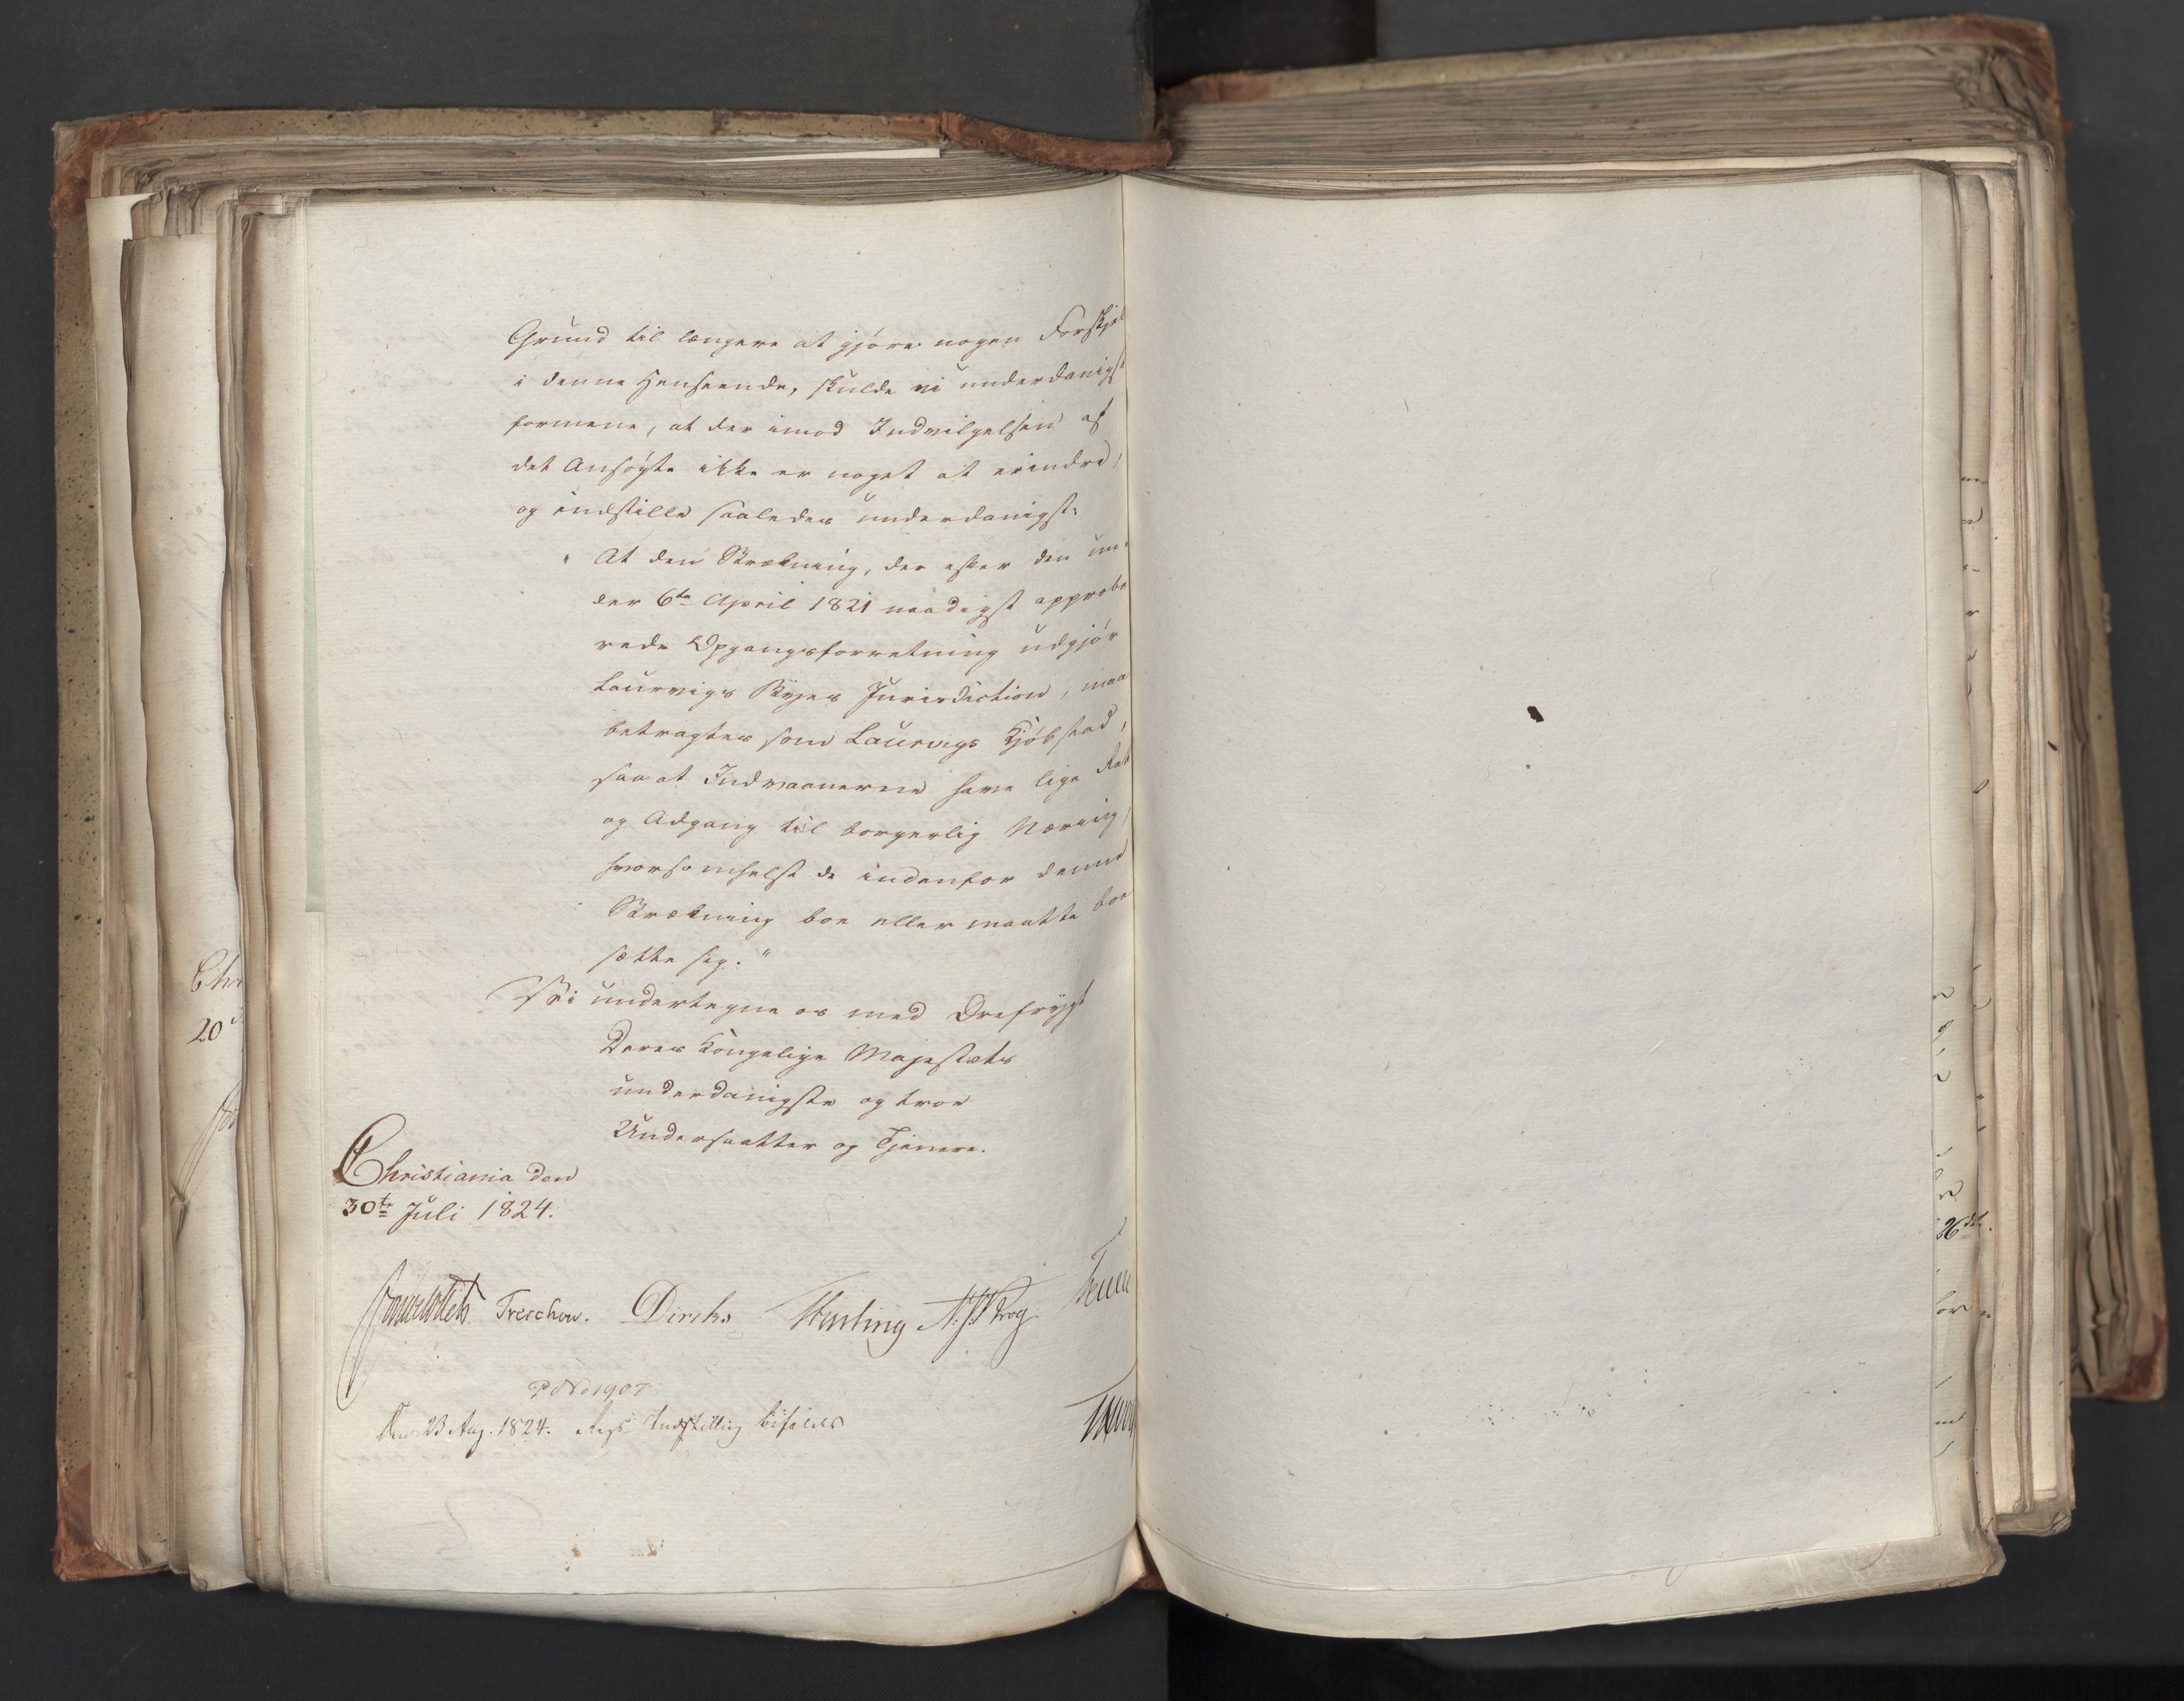 Grund til længere at gjøre nogen Forskjel
i denne Henseende, skulde vi underdanigst
formene, at der imod Indvilgelsen af
det Ansøgte ikke er noget at erindre,
og indstille saaledes underdanigst:
" At den Strækning, der efter den un-
der 6te April 1821 naadigst approbe
rede Opgangsforretning udgjør
Laurvigs Byes Jurisdiction, maa
betragtes som Laurvigs Kjøbstad,
saa at Indvaanerne have lige Ret
og Adgang til borgerlig Næring,
hvorsomhelst de indenfor denne
Strækning boe eller maatte bo
sætte sig. "
Vi undertegne os med Ærefrygt
Deres Kongelige Majestæts
underdanigste og troe
Undersaatter og Tjenere.
Christiania den
30te Juli 1824.
Treschow. Dircks N. J. Krog
P No 1907
Den 23 Aug. 1824. Regs Indstilling bifaldes
Chr
20
26de.